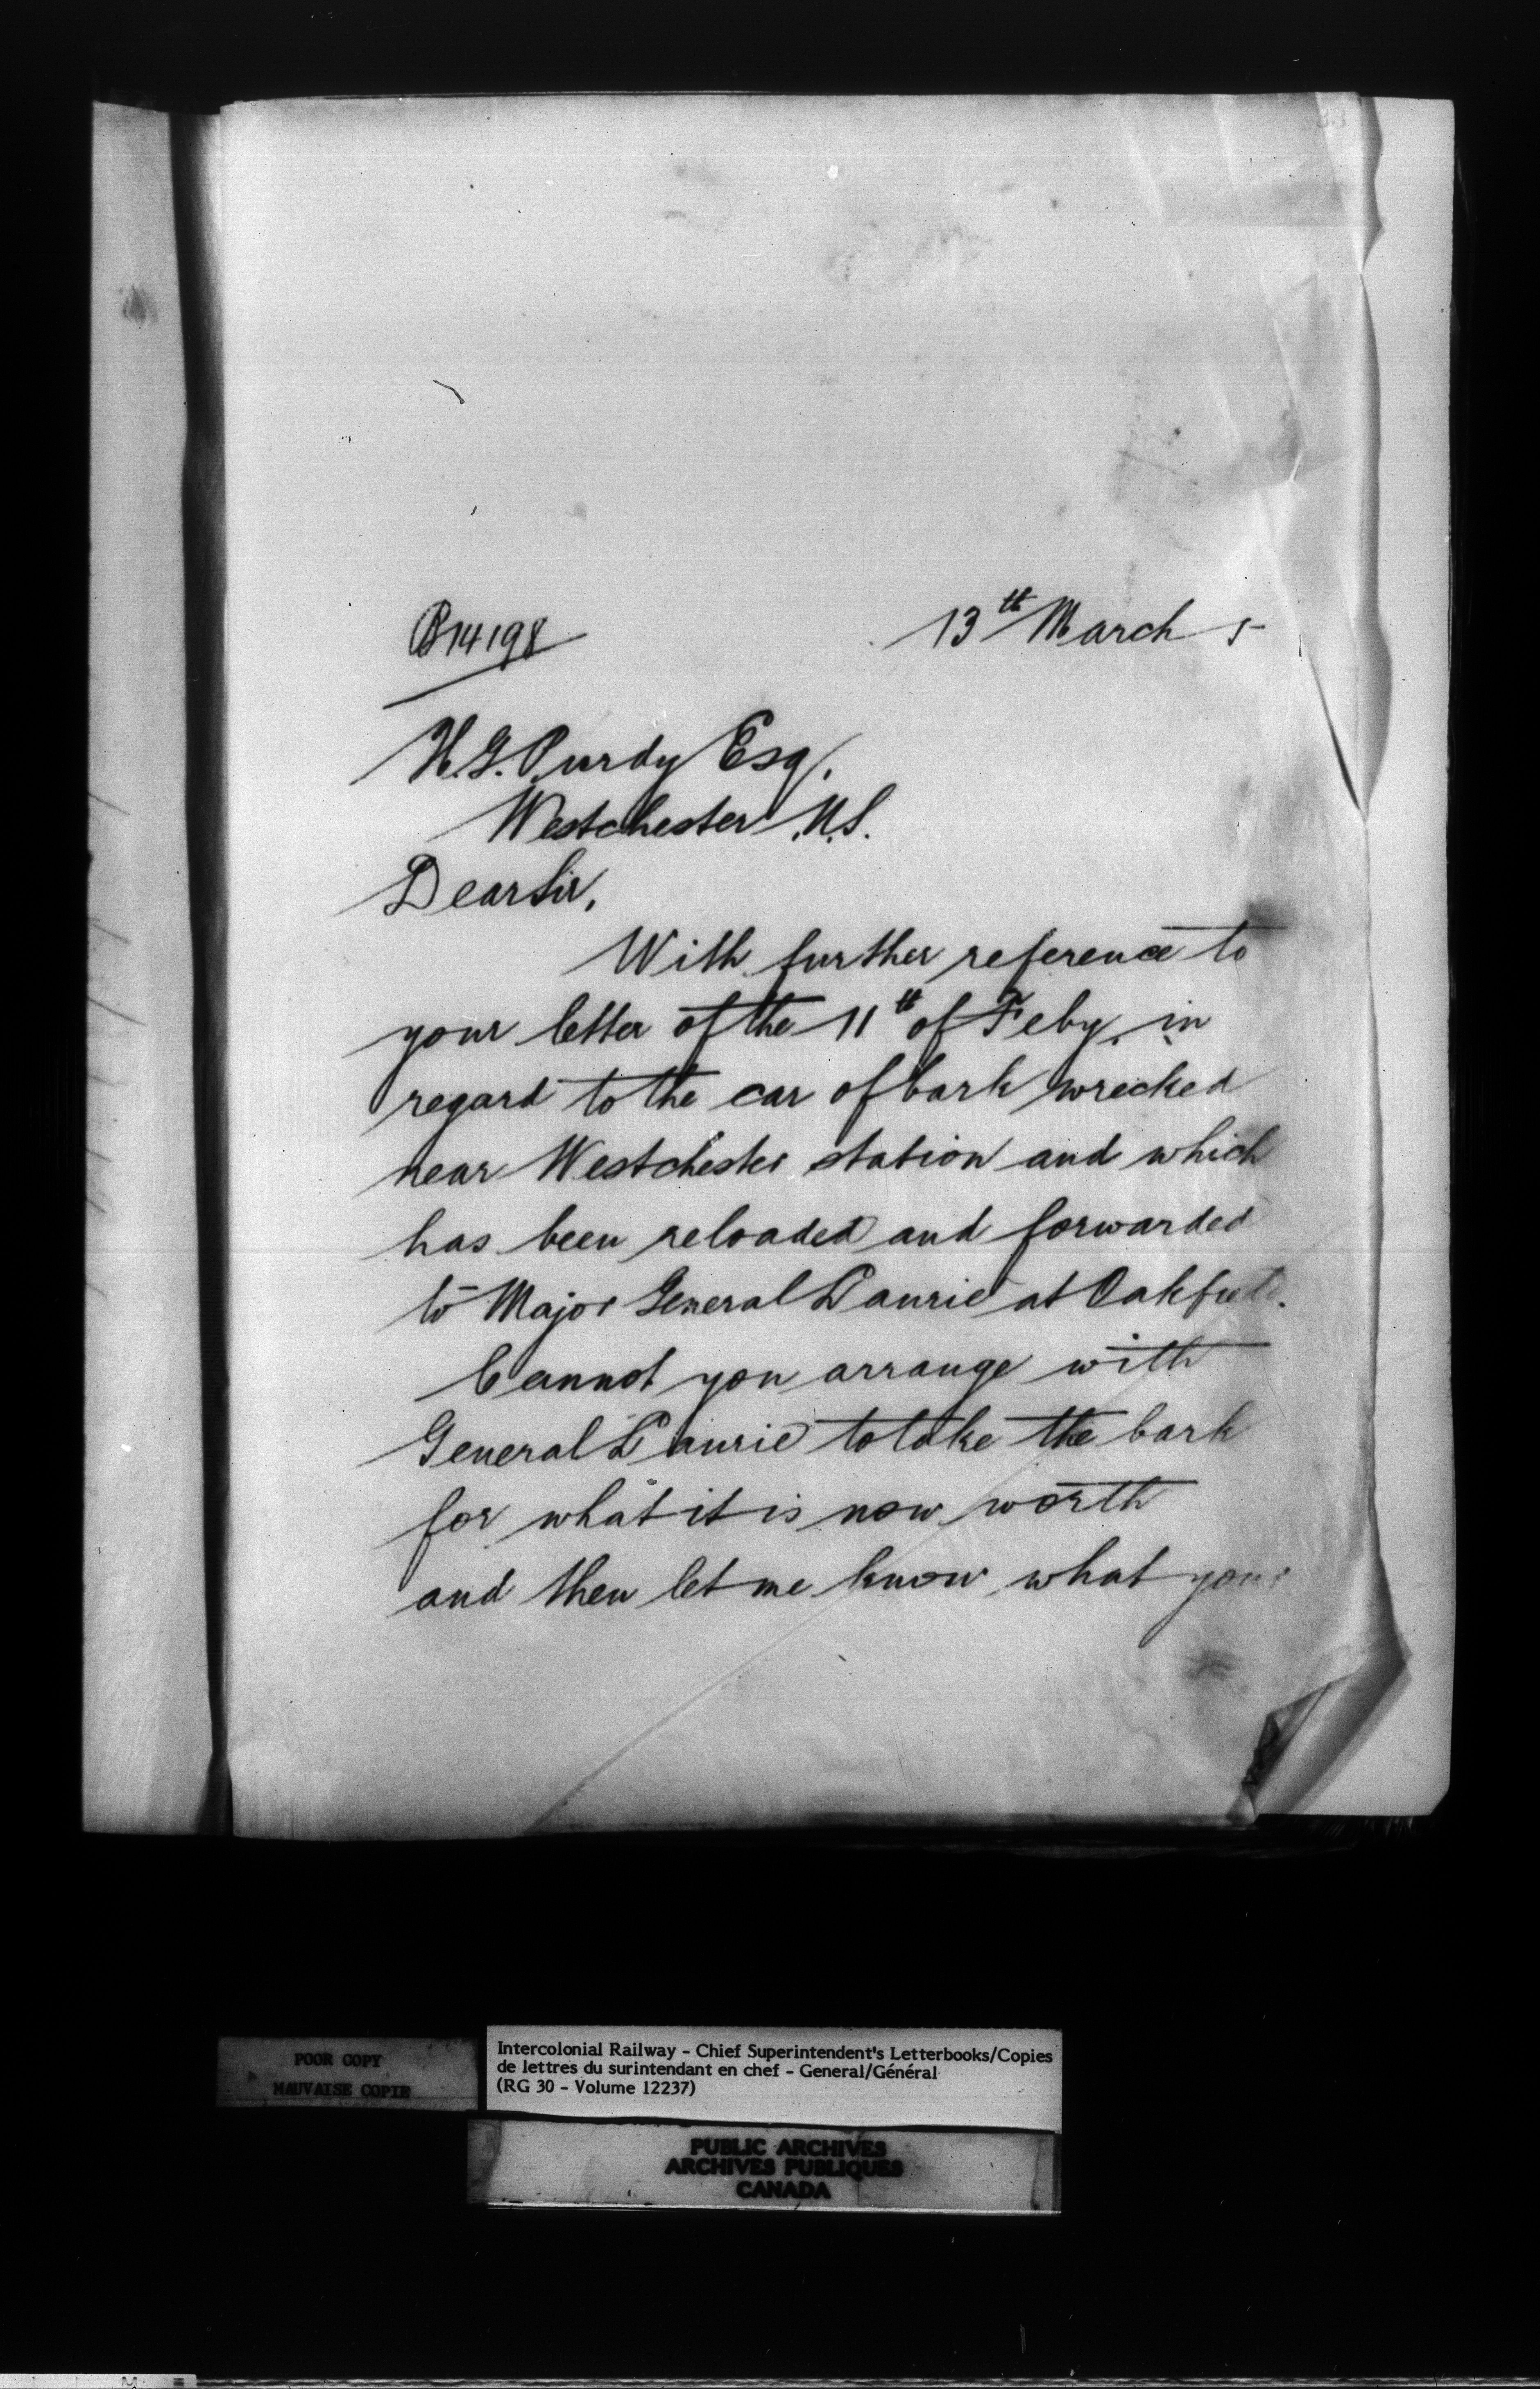 33
B14198
13th March 5
H.G. Purdy Esq.
Westchester N.S.
Dear Sir,
With further reference to
your letter of the 11th of Feby. in
regard to the car of bark wrecked
near Westchester station and which
has been reloaded and forwarded
to Major General Laurie at Oakfield.
Cannot you arrange with
General Laurie to take the bark
for what it is now worth
and then let me know what your
POOR COPY
MAUVAISE COPIE
Intercolonial Railway - Chief Superintendent's Letterbooks/Copies
de lettres du surintendant en chef - General/Général
(RG 30 - Volume 12237)
PUBLIC ARCHIVES
ARCHIVES PUBLIQUES
CANADA